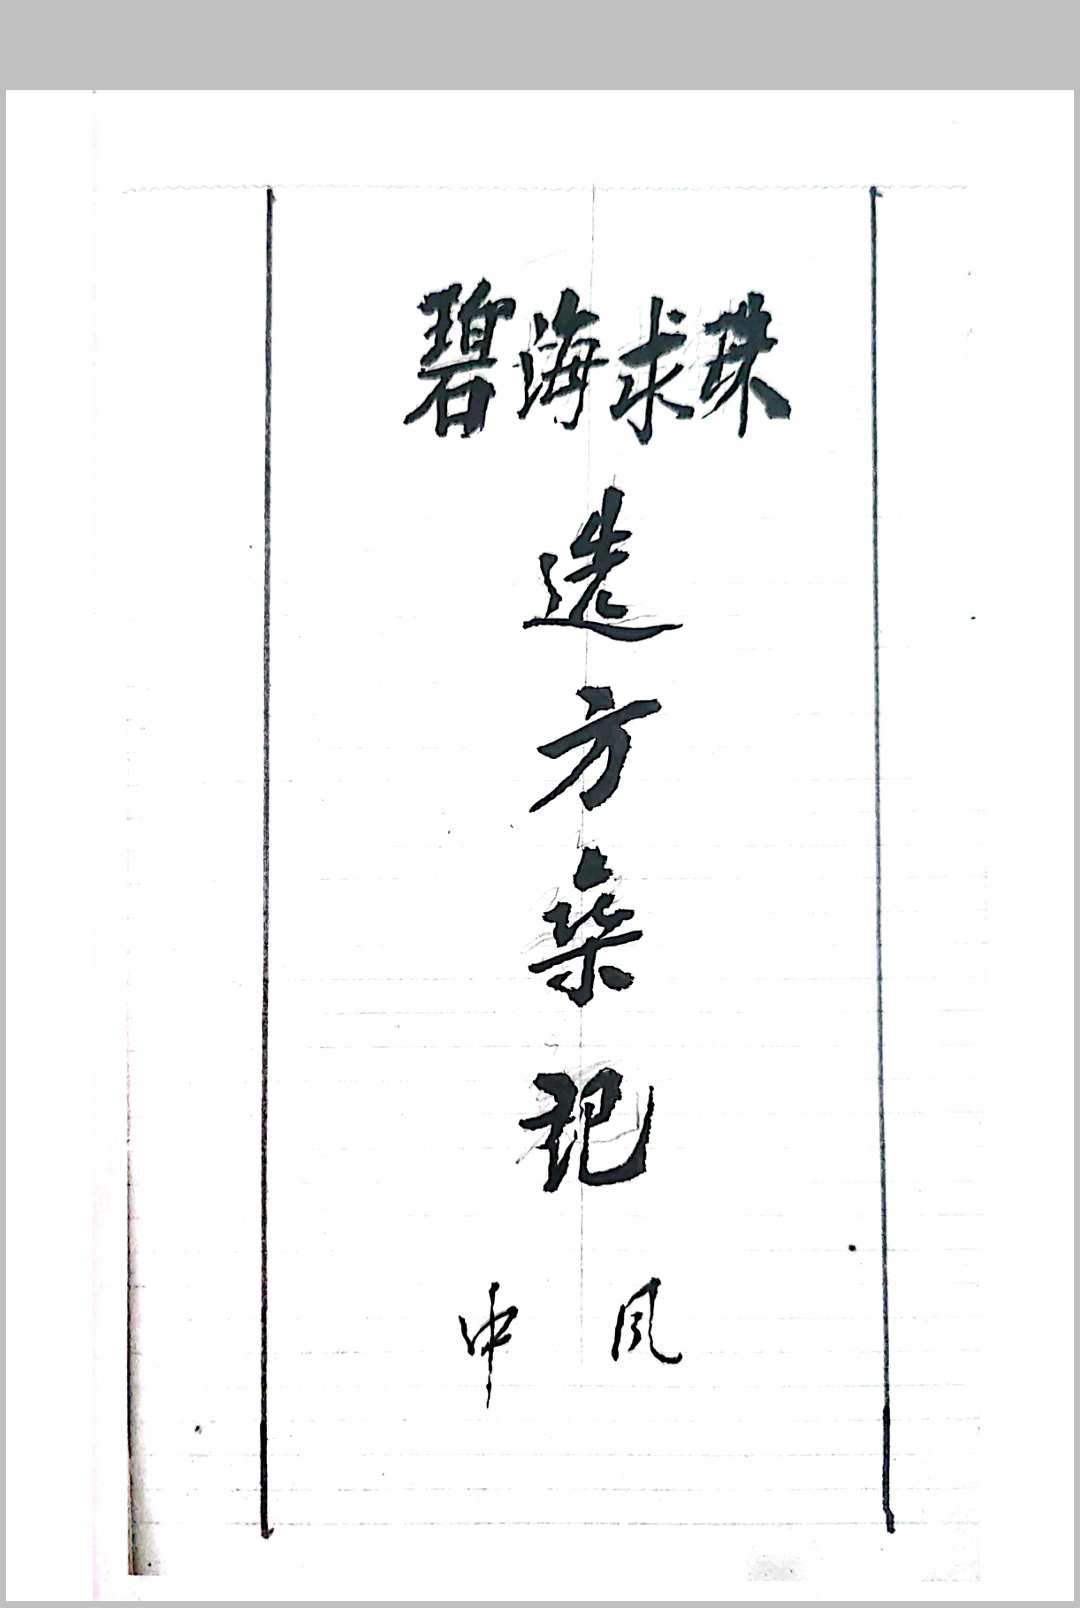 碧海求珠
选
方
记
中风